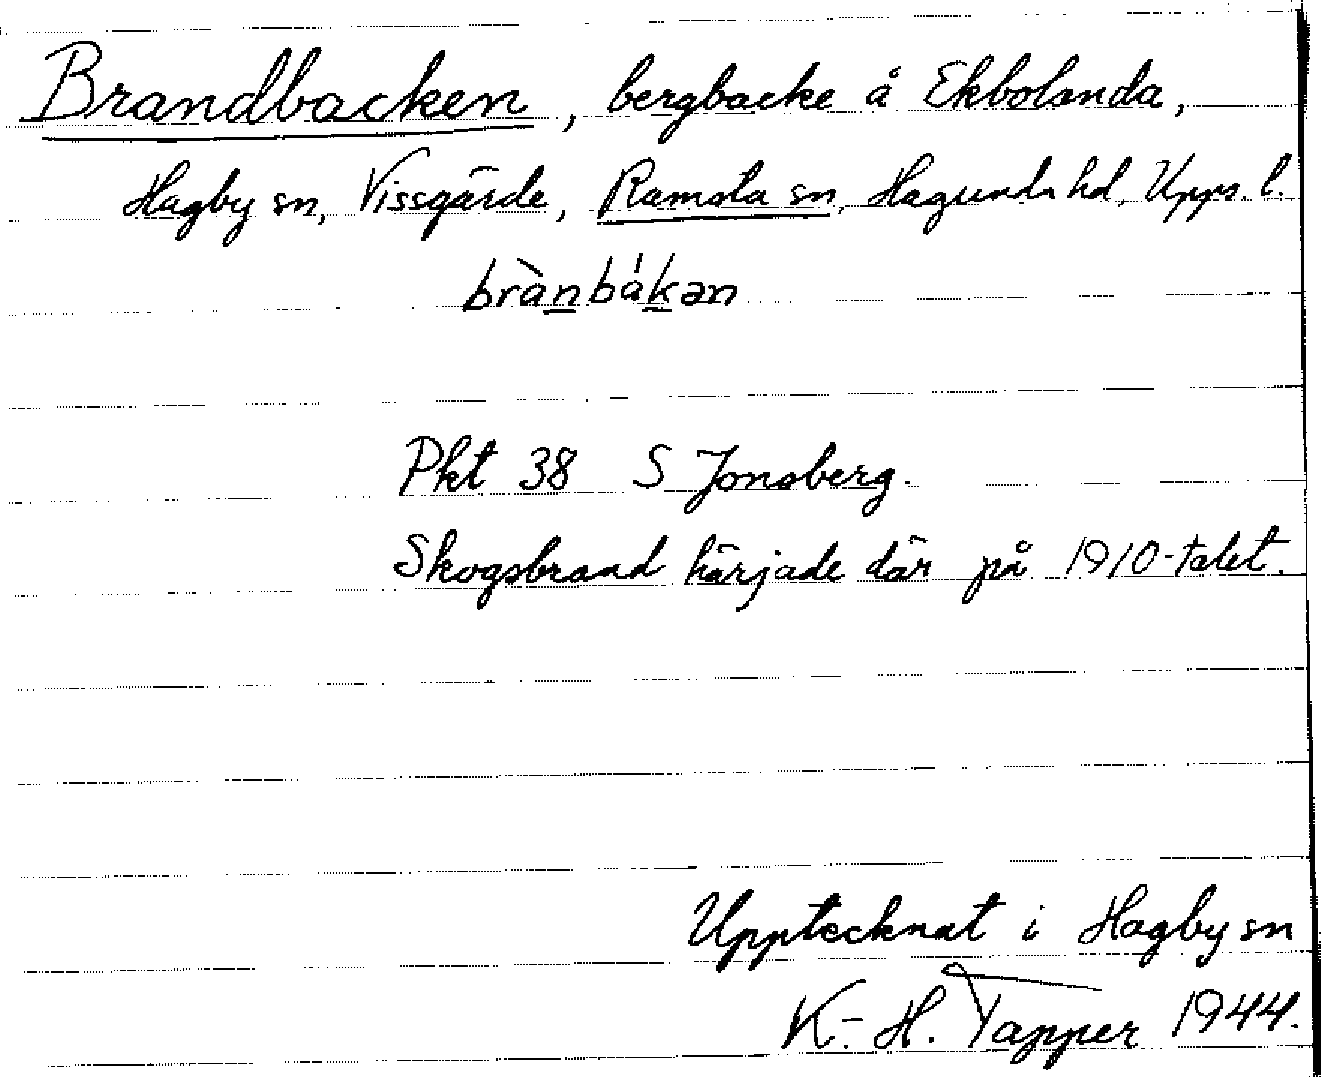 Brandbacken, bergbacke å Ekbolanda,
Hagby sn, Vissgärde, Ramsta sn, Hagunda hd, Upps. l.
brànbákən
Pkt 38 S Jonsberg.
Skogsbrand härjade där på 1910-talet.
Upptecknat i Hagby sn
K.-H. Tapper 1944.